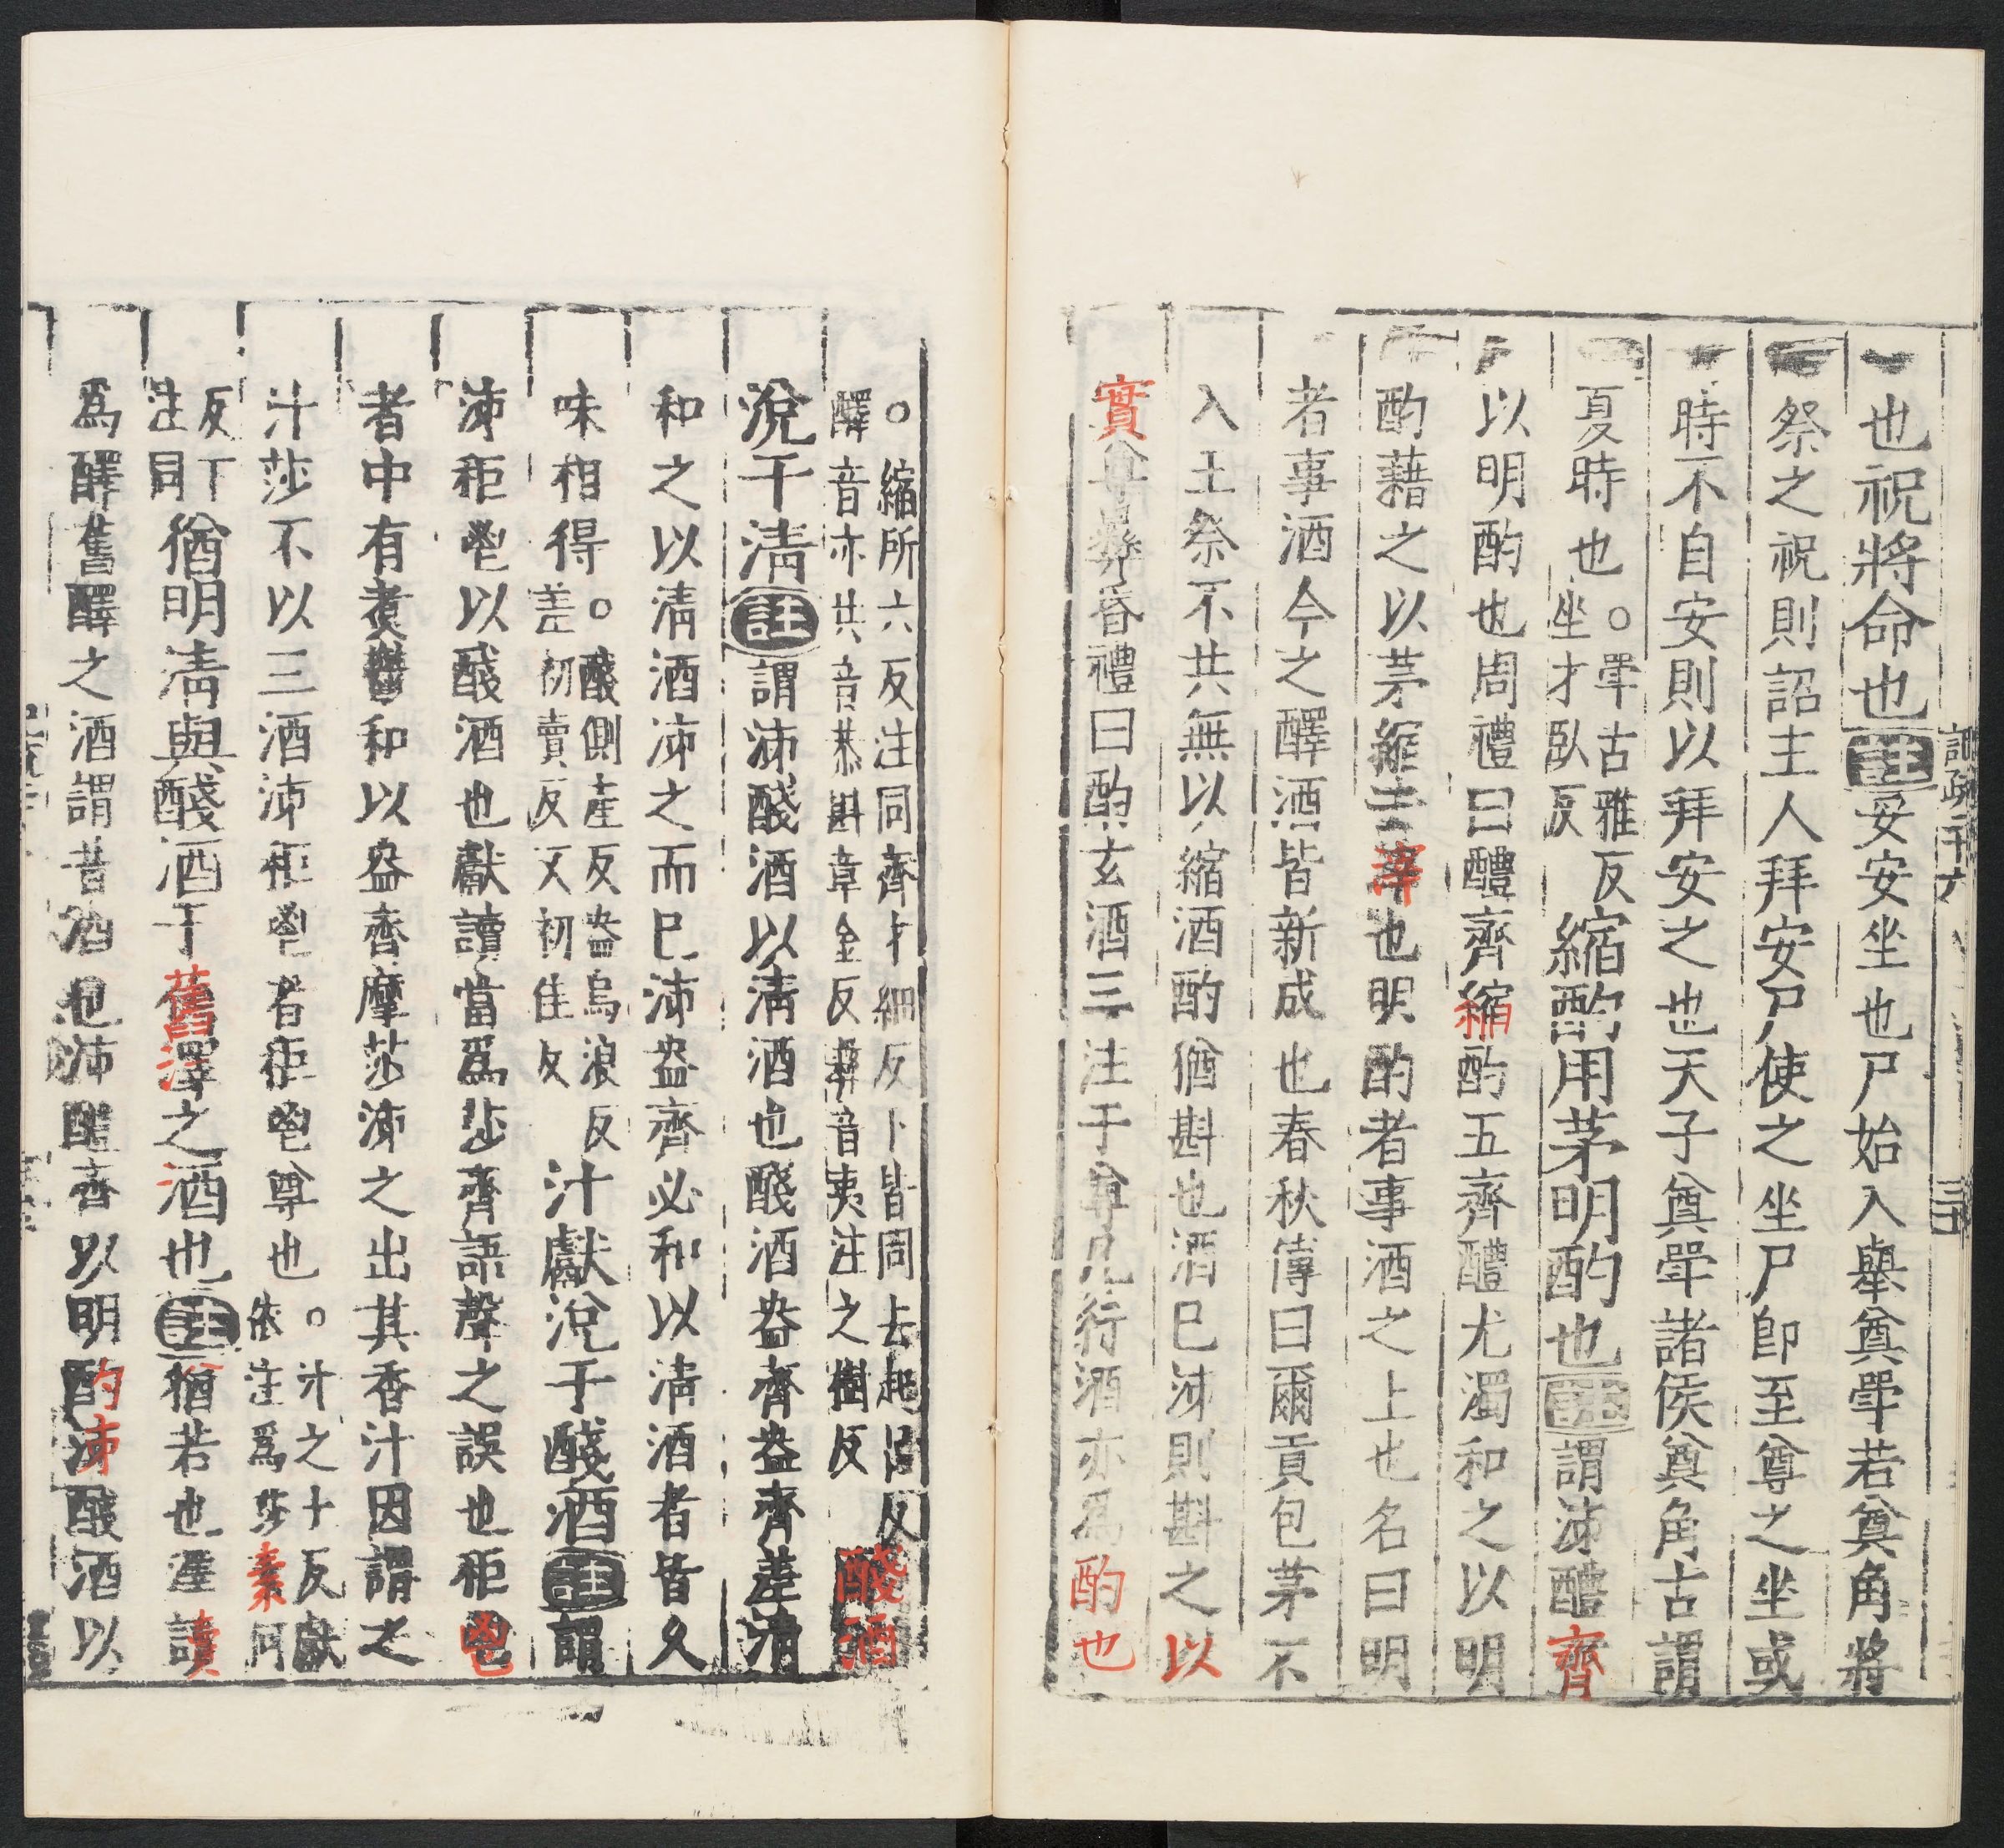 也祝將命也註妥安坐也尸始入舉奠斝若奠角將
祭之祝則詔主人拜安尸使之坐尸卽至尊之坐或
時不自安則以拜安之也天子奠斝諸侯奠角古謂
夏時也○斝古雅反
坐才臥反
縮酌用茅明酌也註謂泲醴齊
以明酌也周禮曰醴齊縮酌五齊醴尤濁和之以明
酌藉之以茅縮去滓也明酌者事酒之上也名曰明
者事酒今之醳酒皆新成也春秋傳曰爾貢包茅不
入王祭不共無以縮酒酌猶斟也酒巳泲則斟之以
實尊彝昏禮曰酌玄酒三注于尊凡行酒亦爲酌也
記疏二十六
○縮所六反注同齊才細反下皆同去起呂反
醳音亦共音恭斟章金反彝音夷注之樹反
醆酒
涗于淸註謂泲醆酒以淸酒也醆酒盎齊盎齊差淸
和之以淸酒泲之而巳泲盎齊必和以淸酒者皆久
味相得○醆側產反盎烏浪反
差初賣反又初佳反
汁獻涗于醆酒註謂
泲秬鬯以醆酒也獻讀當爲莎齊語聲之誤也秬鬯
者中有煑鬱和以盎齊摩莎泲之出其香汁因謂之
汁莎不以三酒泲秬鬯者秬鬯尊也○汁之十反獻
依注爲莎素何
反下
注同
猶明淸與醆酒于舊澤之酒也註猶若也澤讀
爲醳舊醳之酒謂昔酒也泲醴齊以明酌泲醆酒以